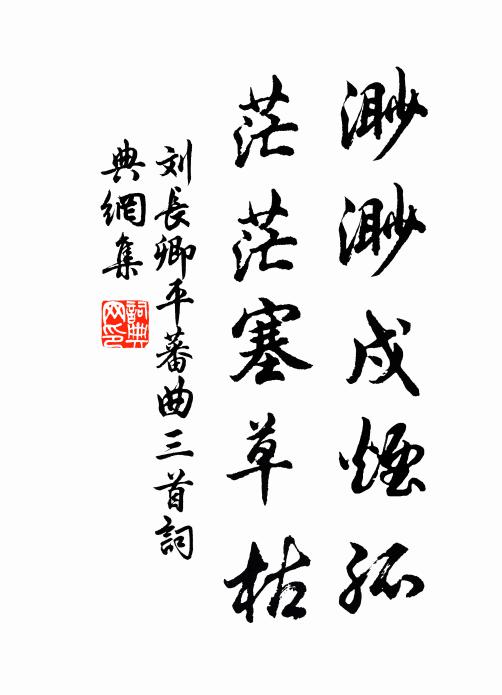 渺渺戍煙孤
茫茫塞草枯
刘長卿平蕃曲三首詞
典網集
詞典
网印